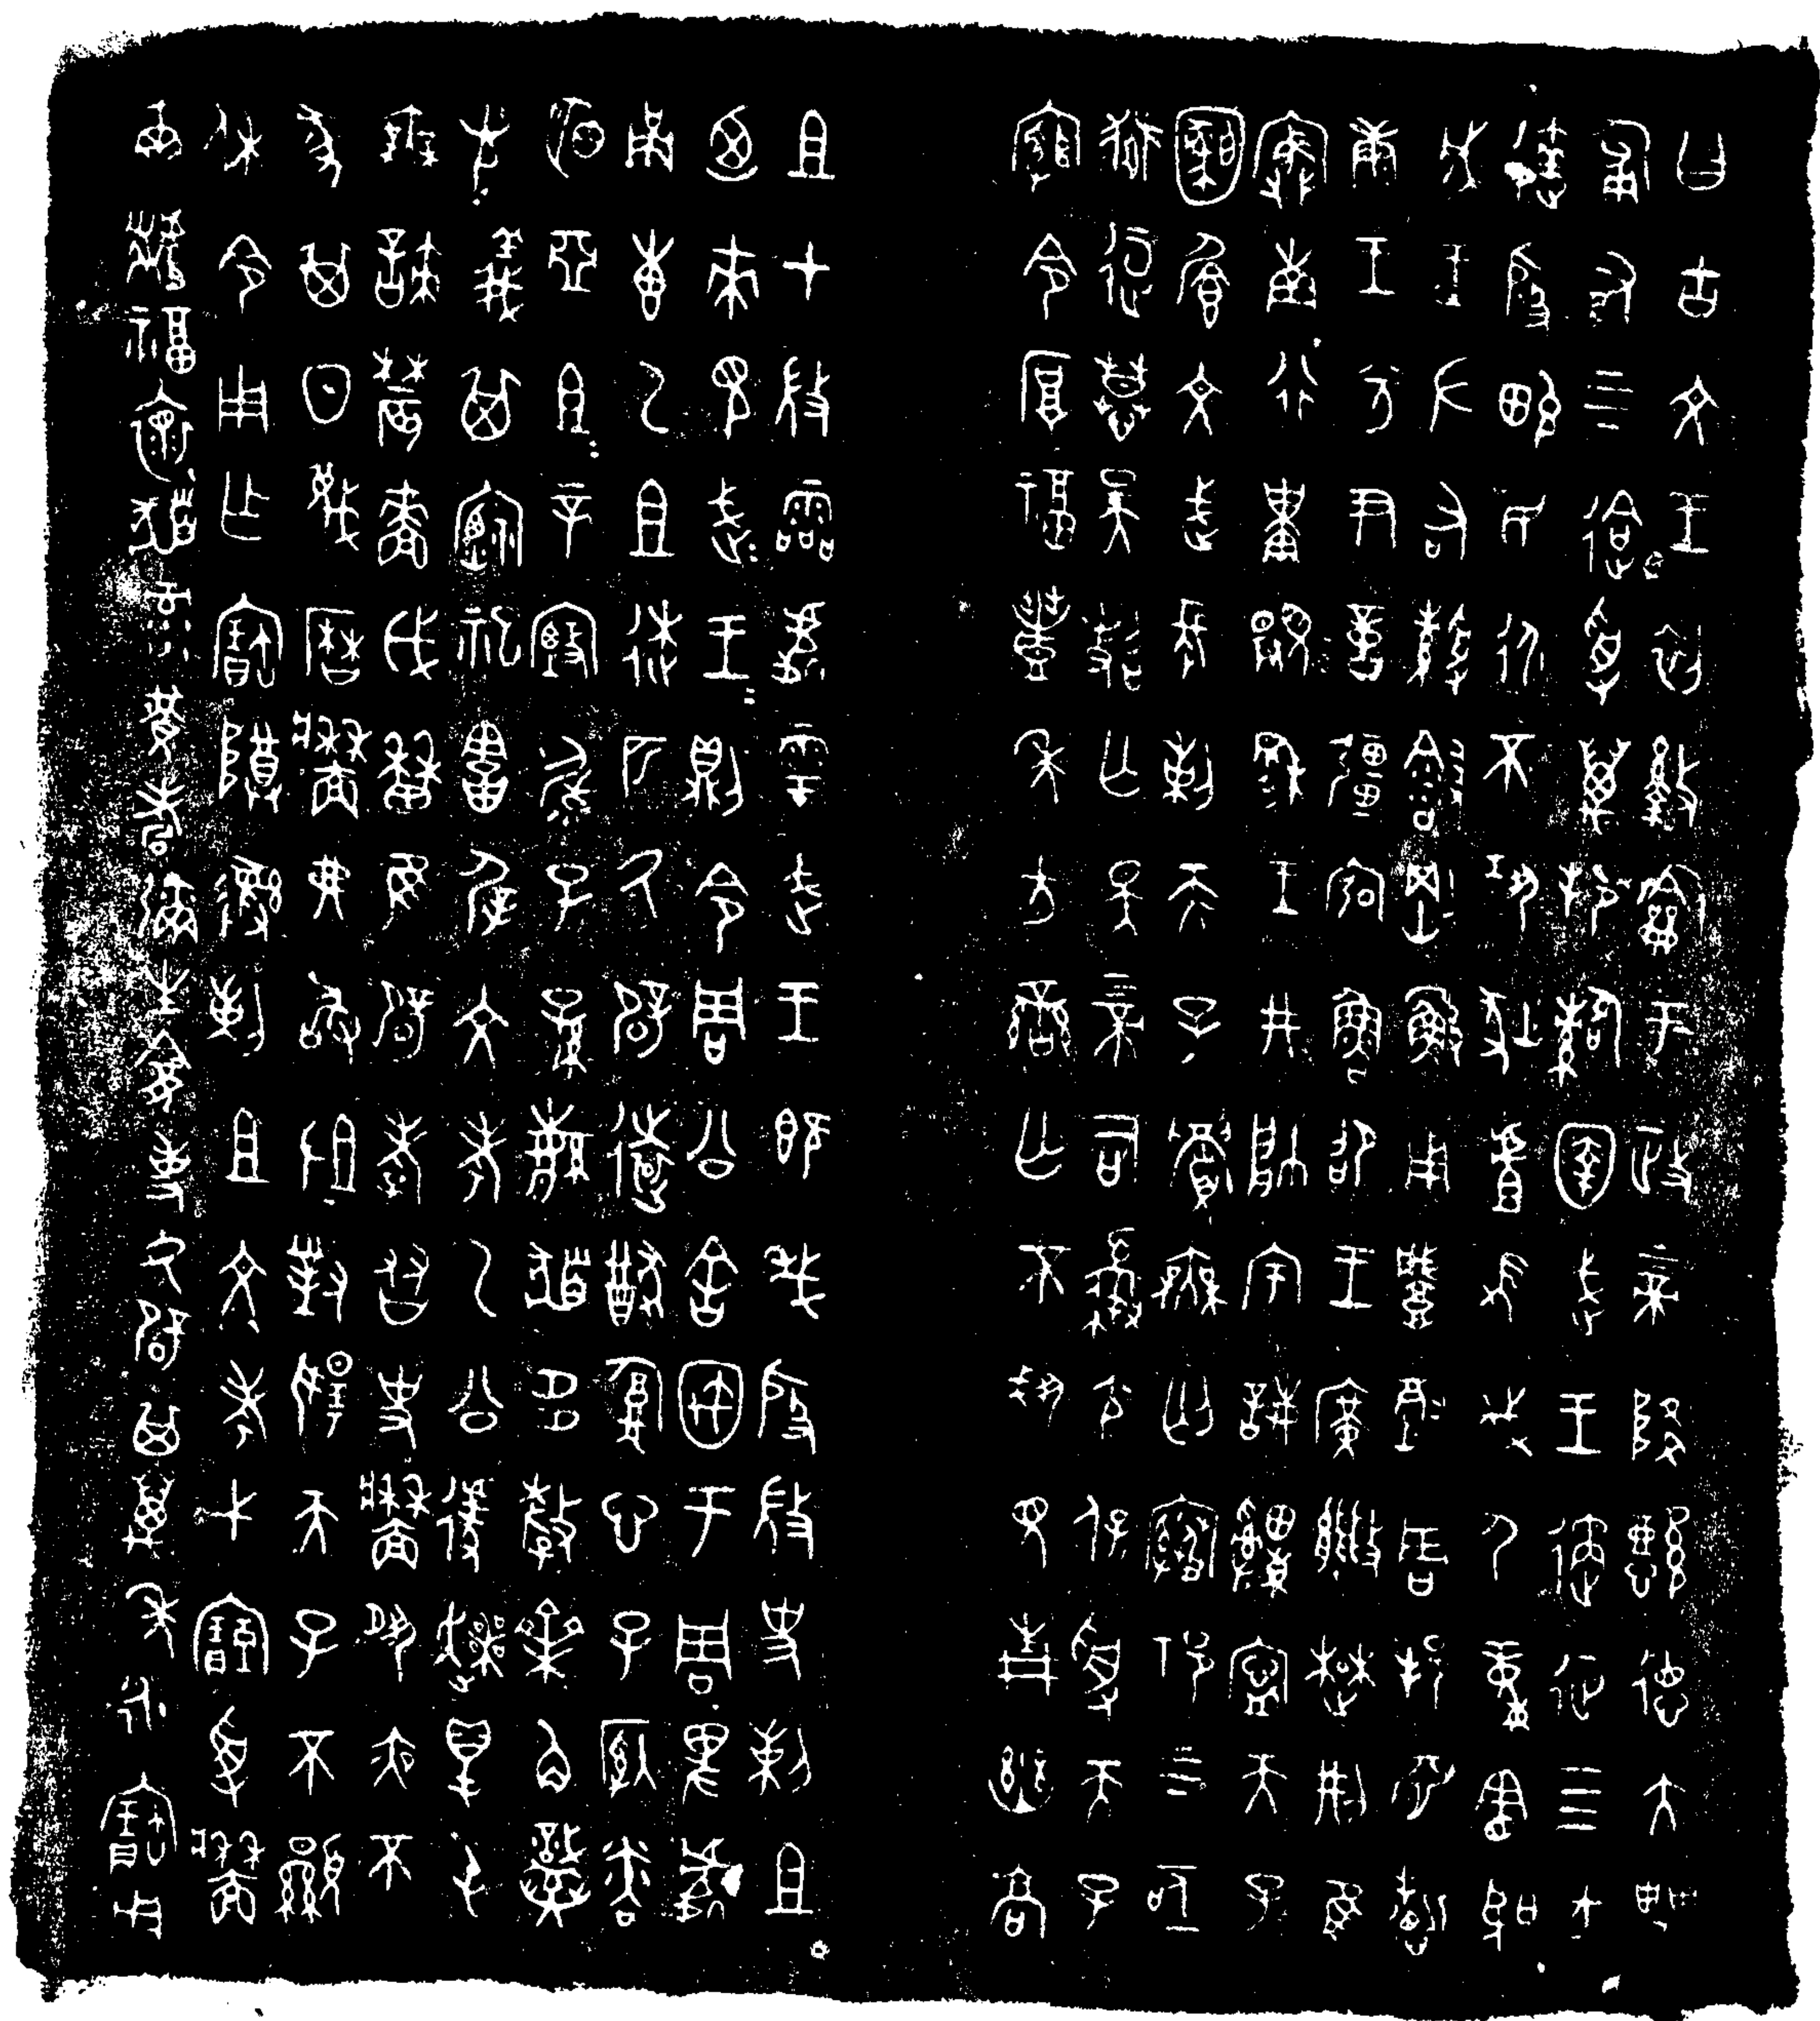 曰古文王初盭龢于政上帝降懿德大甹
匍有上下迨受萬邦𩁹圉武王遹征四方
達殷畯民永不巩狄虘髟伐尸童憲聖
成王左右綬會剛鯀用肇徹周邦淵哲
康王兮尹億疆宖魯邵王廣能楚荊隹
寏南行祗顯穆王井帥宇誨申寧天子
天子圝饡文武長剌天子眉無匄祁上下亟
熙逗慕昊照亡斁上帝司夒尢保受天子
綰令厚福豐年方蠻亡不𢦚見青幽高
且才微霝處𩁹武王既𢦏殷微史剌且
廼來見武王武王則令周公舍㝢于周卑處
甬叀乙且逨匹氒辟遠猷腹心子納粦
明亞且且辛𡫀毓子孫繁祓多孷齊角熾
光義其禋祀害屖文考乙公遽爽得屯
無諫農穡戉𤯍隹辟孝友史牆夙夜不
墜其日蔑曆牆弗敢沮對揚天子不顯
休令用乍寶尊彝剌且文考弋受牆
爾福褱彔黃耇彌生龕事氒辟其萬年永寶用